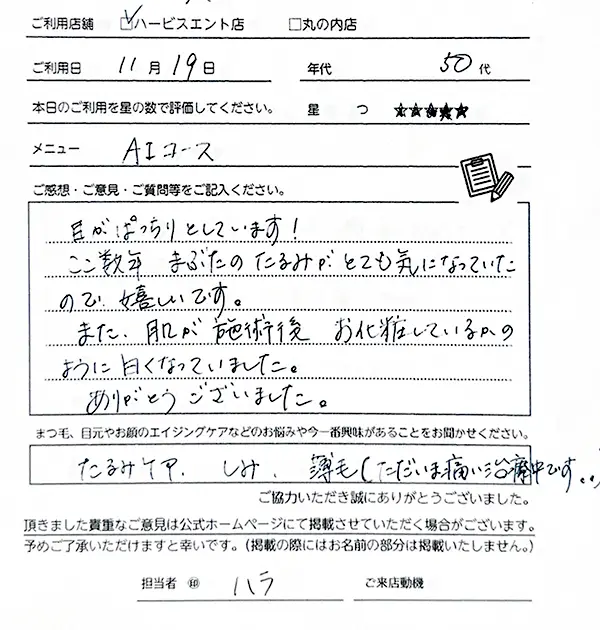 ご利用店舗 ☑ハービスエント店 □丸の内店
ご利用日 11月19日 年代 50代
本日のご利用を星の数で評価してください。 星 つ ★★★★★
メニュー AIコース
ご感想・ご意見・ご質問等をご記入ください。
目がぱっちりとしています！
ここ数年 まぶたのたるみがとても気になっていた
ので、嬉しいです。
また、肌が施術後 お化粧しているかの
ように白くなっていました。
ありがとうございました。
まつ毛、目元やお顔のエイジングケアなどのお悩みや今一番興味があることをお聞かせください。
たるみケア、しみ、薄毛(ただいま痛い治療中です。。)
ご協力いただき誠にありがとうございました。
頂きました貴重なご意見は公式ホームページにて掲載させていただく場合がございます。
予めご了承いただけますと幸いです。(掲載の際にはお名前の部分は掲載いたしません。)
担当者 ㊞ ハラ ご来店動機